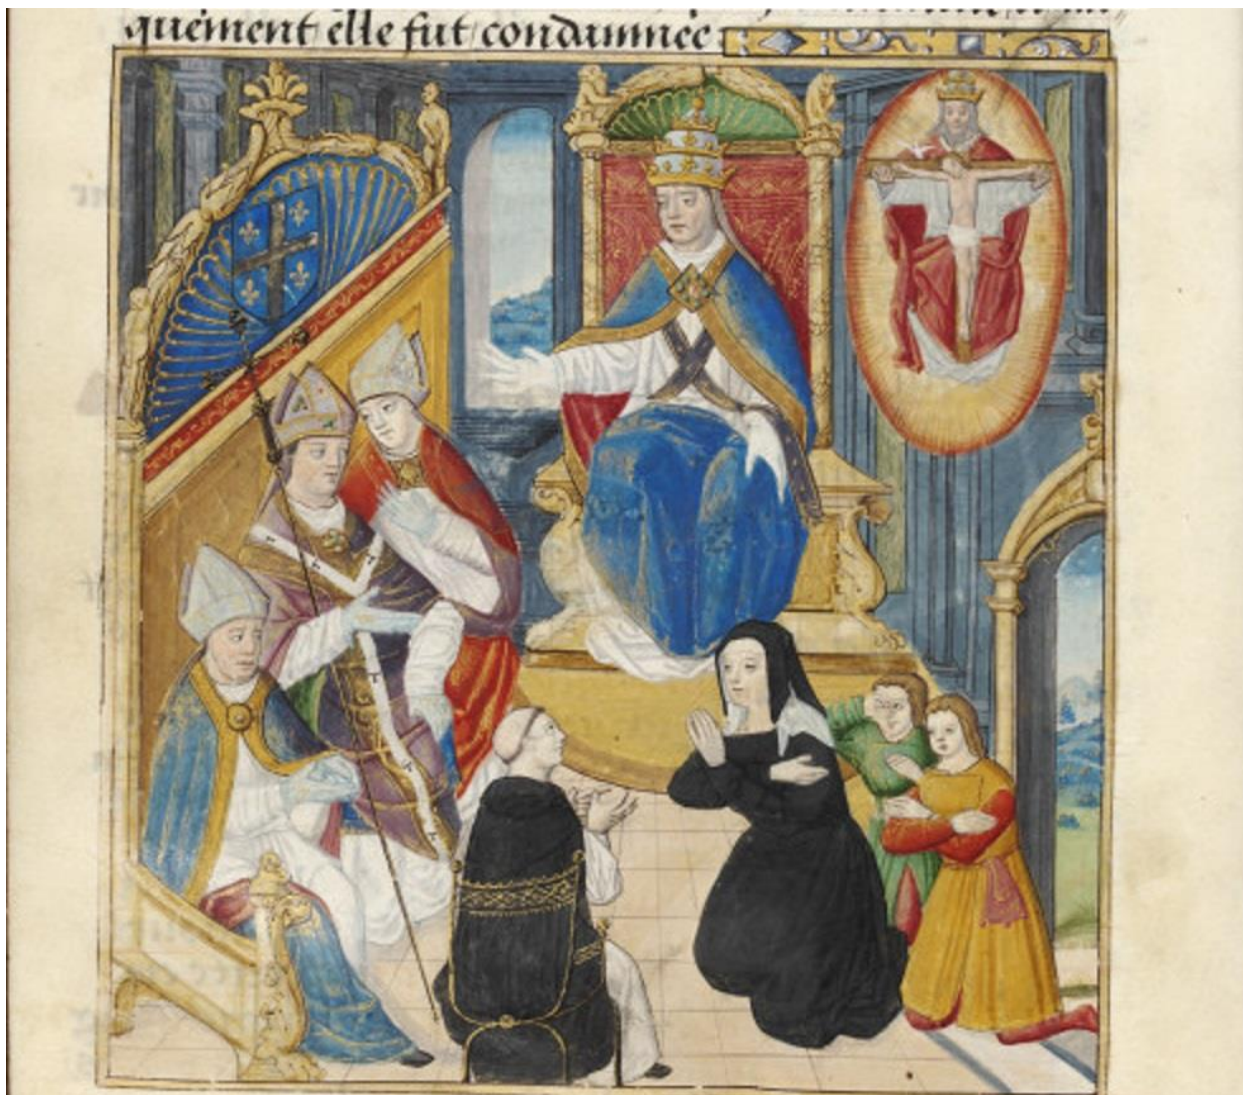 quement elle fut condamnee